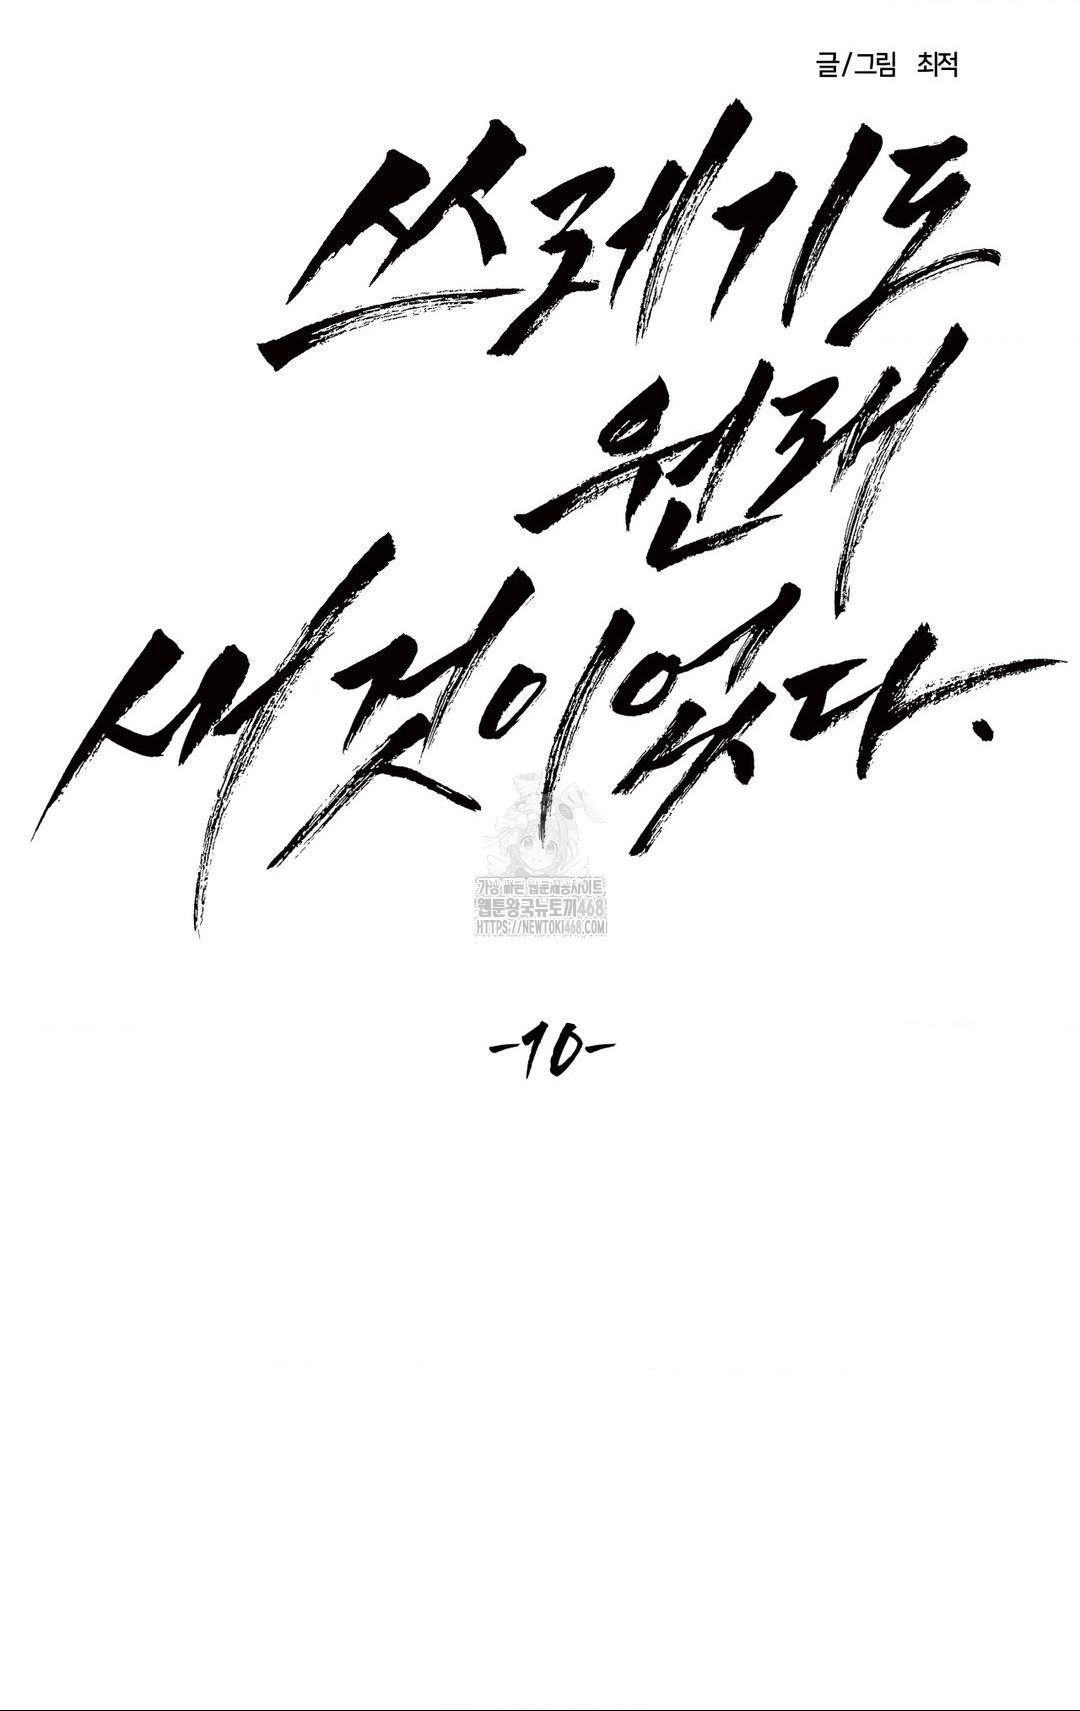 글/그림 최적
쓰레기도
원래
새것이었다.
가장 빠른 웹툰제공사이트
웹툰왕국뉴토끼468
HTTPS://NEWTOKI468.COM
-10-